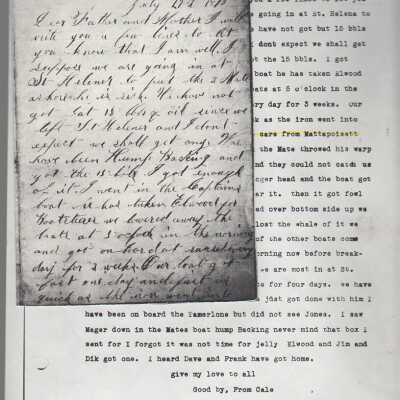 July
Dear Father and Mother I will
write you a few lines to let
you know that I am well. I
suppose we are going in at
St Helener to put the 2 Mate
ashore he is sick. We have not
got but 15 bbls oil since we
left St Helener and I dont
expect we shall get any. We
have been Hump Backing and
got the 15 bbls I got enough
of it I went in the Captains
boat he has taken Elwood for
Boatsteerer we lowered away the
boats at 5 oclock in the morning
and got on board at sundown every
day for 3 weeks. Our boat got
fast one day and just as
quick as the iron went in
going in at St. Helena to
have not got but 15 bbls
dont expect we shall get
t the 15 bbls. I got
boat he has taken Elwood
oats at 5 o'clock in the
ry day for 3 weeks. Our
k as the iron went into
cars from Mattapoisett
the Mate throwed his warp
nd they could not catch us
ager head and the boat got
ar it. then it got fowl
ed over bottom side up we
lost the whale of it we
of the other boats come
orning now before break-
we are most in at St.
ce for four days. we have
jdst got done with him I
have been on board the Tamerlone but did not see Jones. I saw
Mager down in the Mates boat hump Backing never mind that box I
sent for I forgot it was not time for jelly Elwood and Jim and
Dik got one. I heard Dave and Frank have got home.
give my love to all
Good by, From Cale